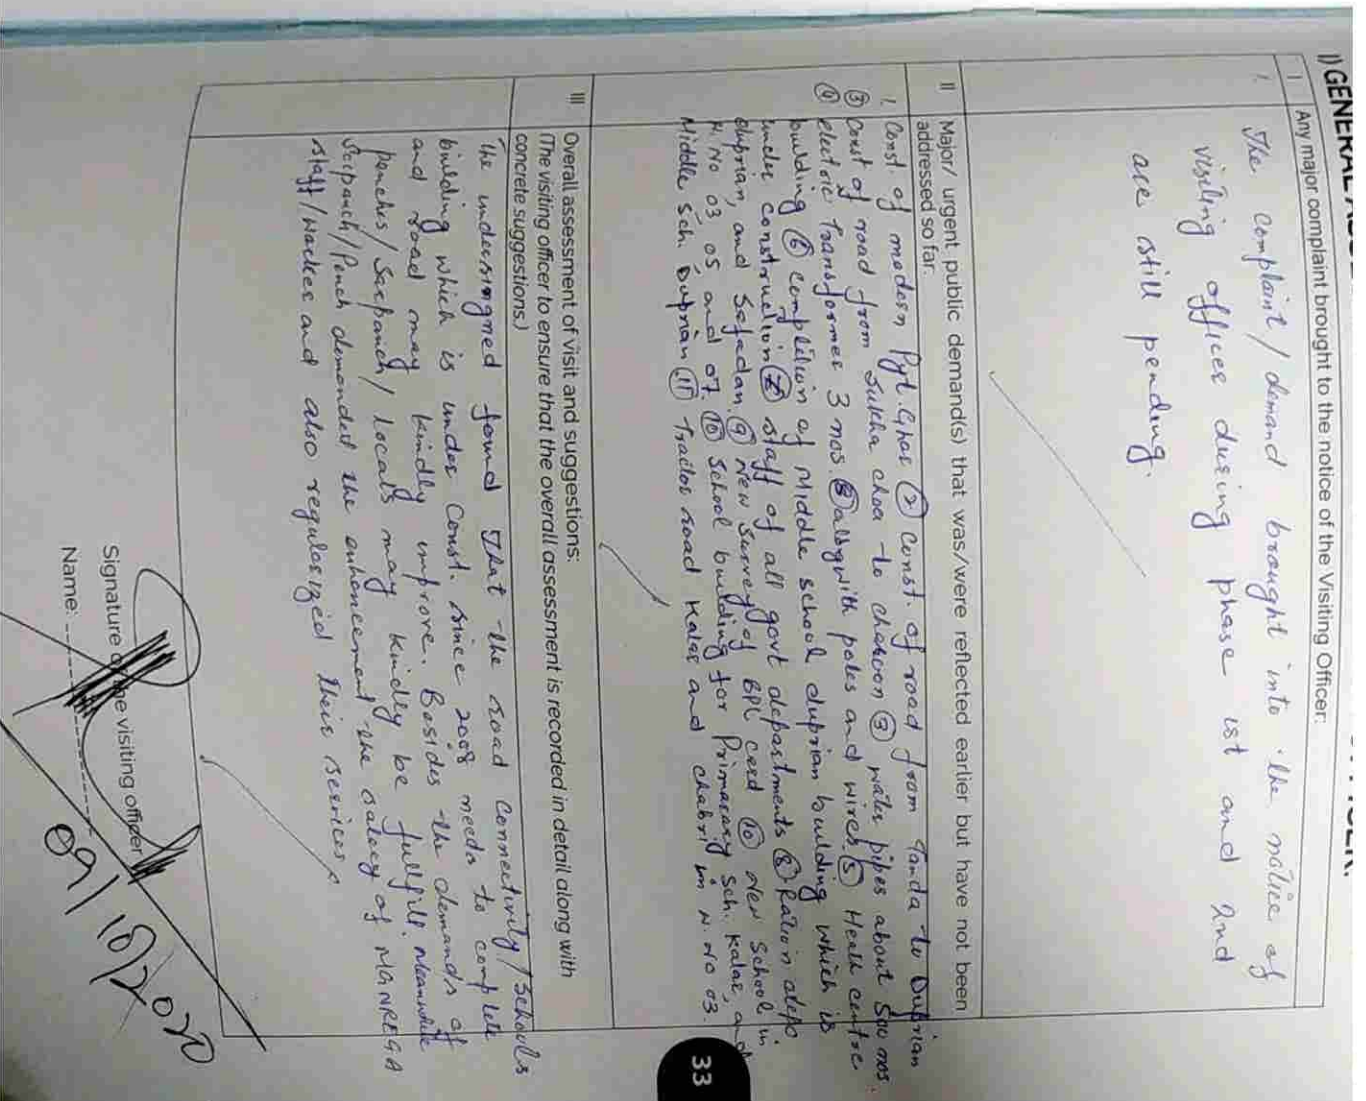 I) GENERAL
I Any major complaint brought to the notice of the Visiting Officer:
1. The complaint/demand brought into the notice of
visiting officer during phase ist and 2nd
are still pending.
II Major/ urgent public demand(s) that was/were reflected earlier but have not been
addressed so far.
1. Const. of modern Pyt. Ghar ② Const. of road from Tanda to Duprian
③ Const of road from Sukha choa to chakoon ③ water pipes about 500 nos.
④ electric Transformer 3 nos. alongwith poles and wires ⑤ Health centre
building ⑥ complition of Middle school duprian building which is
under construction ⑦ staff of all govt departments ⑧ Ration depo
duprian and Sefadan. ⑨ New survey of BPL card ⑩ New School in
W.No 03, 05 and 07. ⑩ School building for Primary Sch. Kalar, and
Middle Sch. Duprian ⑪ Tractor road Kalar and chabril in W. No 03.
33
III Overall assessment of visit and suggestions:
(The visiting officer to ensure that the overall assessment is recorded in detail along with
concrete suggestions.)
The undersigned found that the road connectivity/Schools
building which is under Const. since 2008 needs to complete
and road may kindly improve. Besides the demands of
penches/Sarpanch/locals may kindly be fullfill. Meanwhile
Sarpanch/Pench demanded the enhancement the salary of MANREGA
staff/Worker and also regularized their services.
Signature of the visiting officer
Name:
09/10/2020